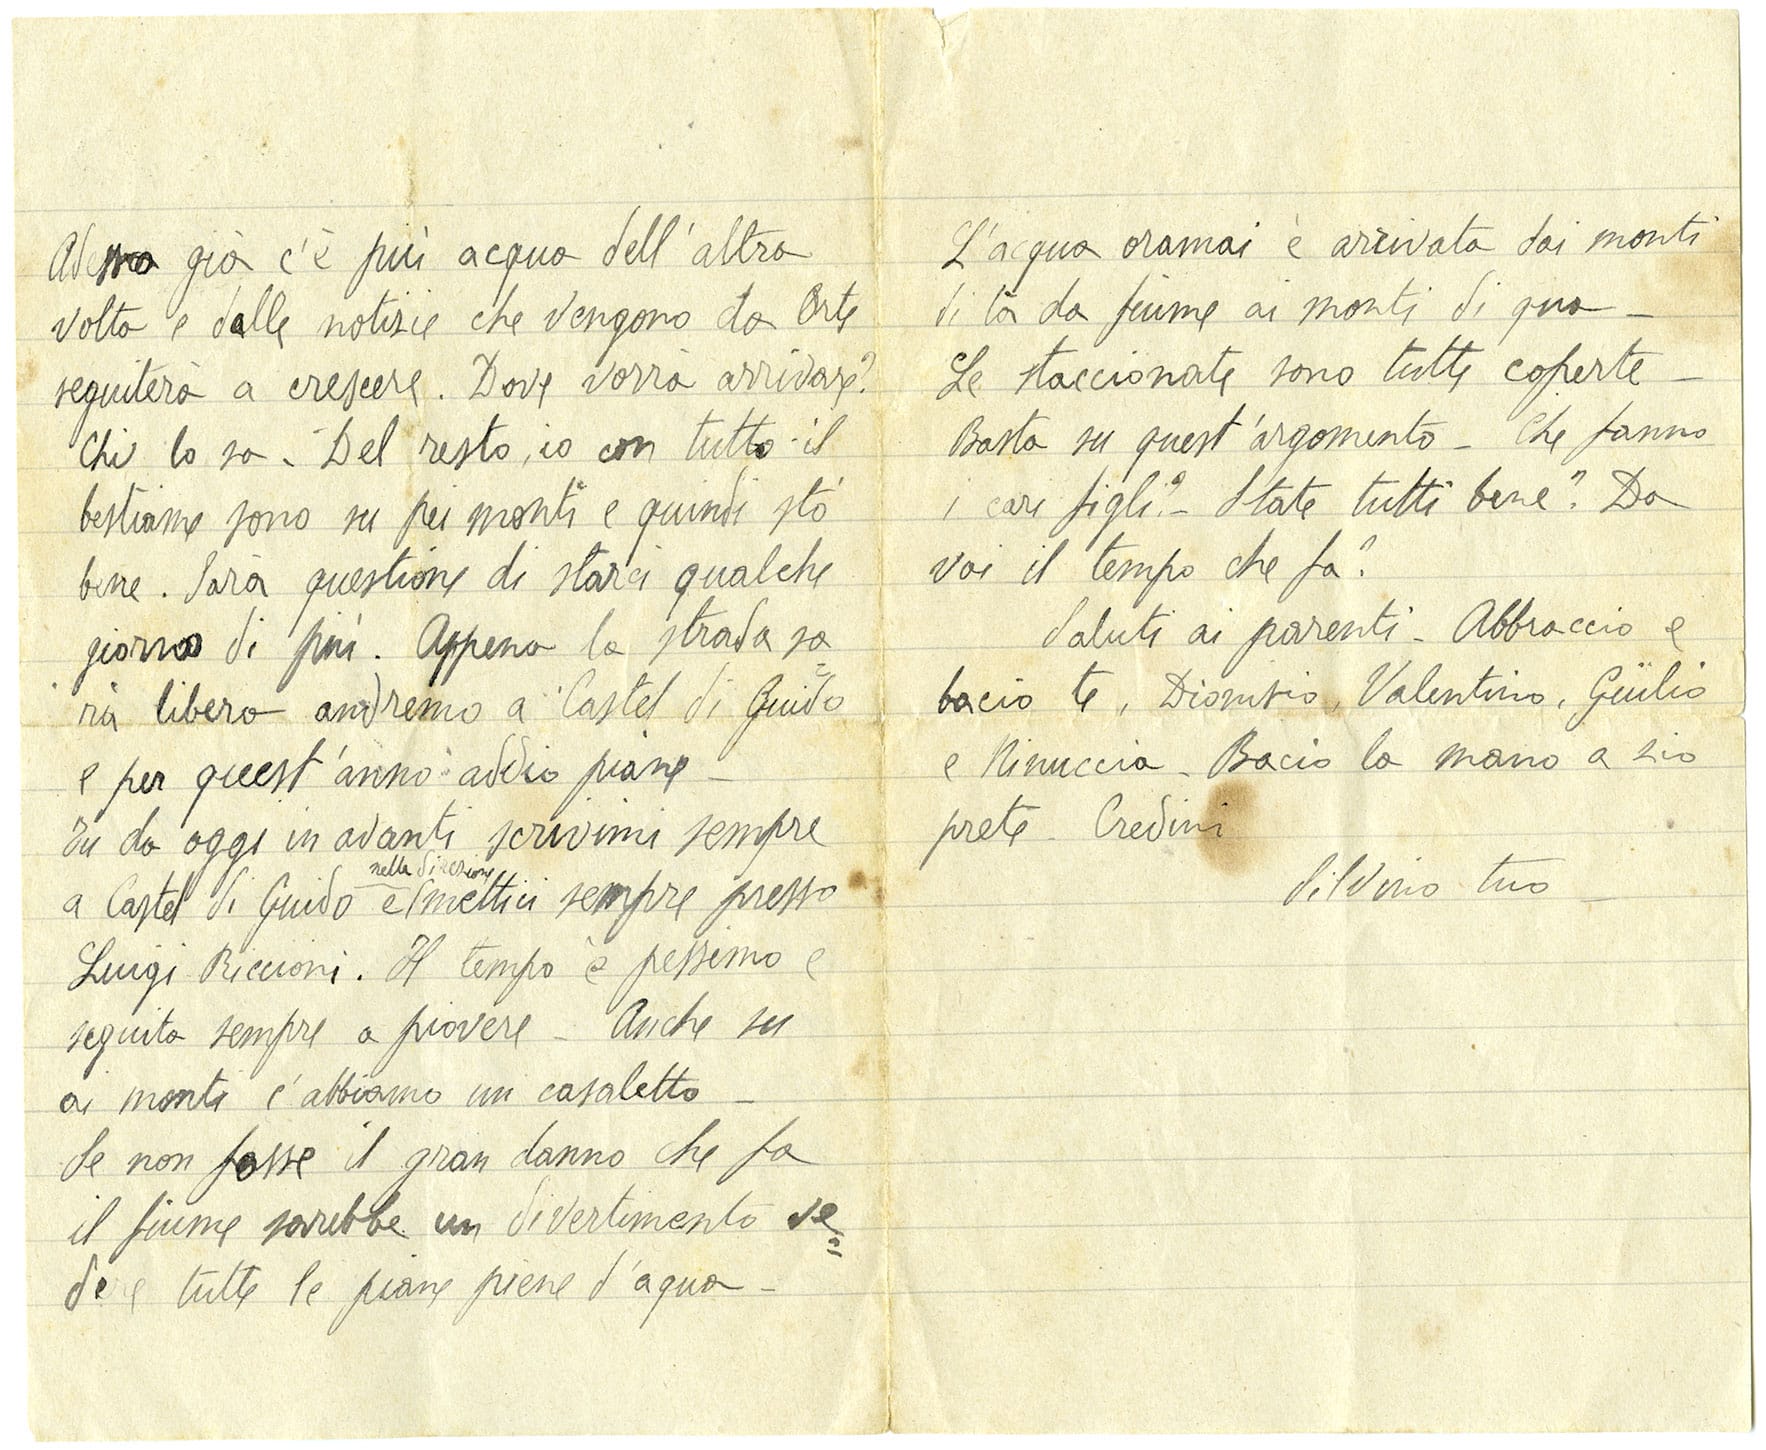 Adesso già c'è più acqua dell'altra
volta e dalle notizie che vengono da Orte
seguiterà a crescere. Dove vorrà arrivare?
Chi lo sa - Del resto, io con tutto il
bestiame sono su pei monti e quindi stò
bene. Sarà questione di starci qualche
giorno di più. Appena la strada sa=
rà libera andremo a Castel di Guido
e per quest'anno addio piane -
Tu da oggi in avanti scrivimi sempre
nella direzione
a Castel di Guido e mettici sempre presso
Luigi Riccioni. Il tempo è pessimo e
seguita sempre a piovere - Anche su
ai monti c'abbiamo un casaletto -
Se non fosse il gran danno che fa
il fiume sarebbe un divertimento ve=
dere tutte le piane piene d'aqua -
L'acqua oramai è arrivata dai monti
di là da fiume ai monti di qua -
Le staccionate sono tutte coperte -
Basta su quest'argomento - Che fanno
i cari figli? - State tutti bene? Da
voi il tempo che fa?
Saluti ai parenti - Abbraccio e
bacio te, Dionisio, Valentino, Giulio
e Ninuccia - Bacio la mano a zio
prete - Credimi
Silvino tuo -